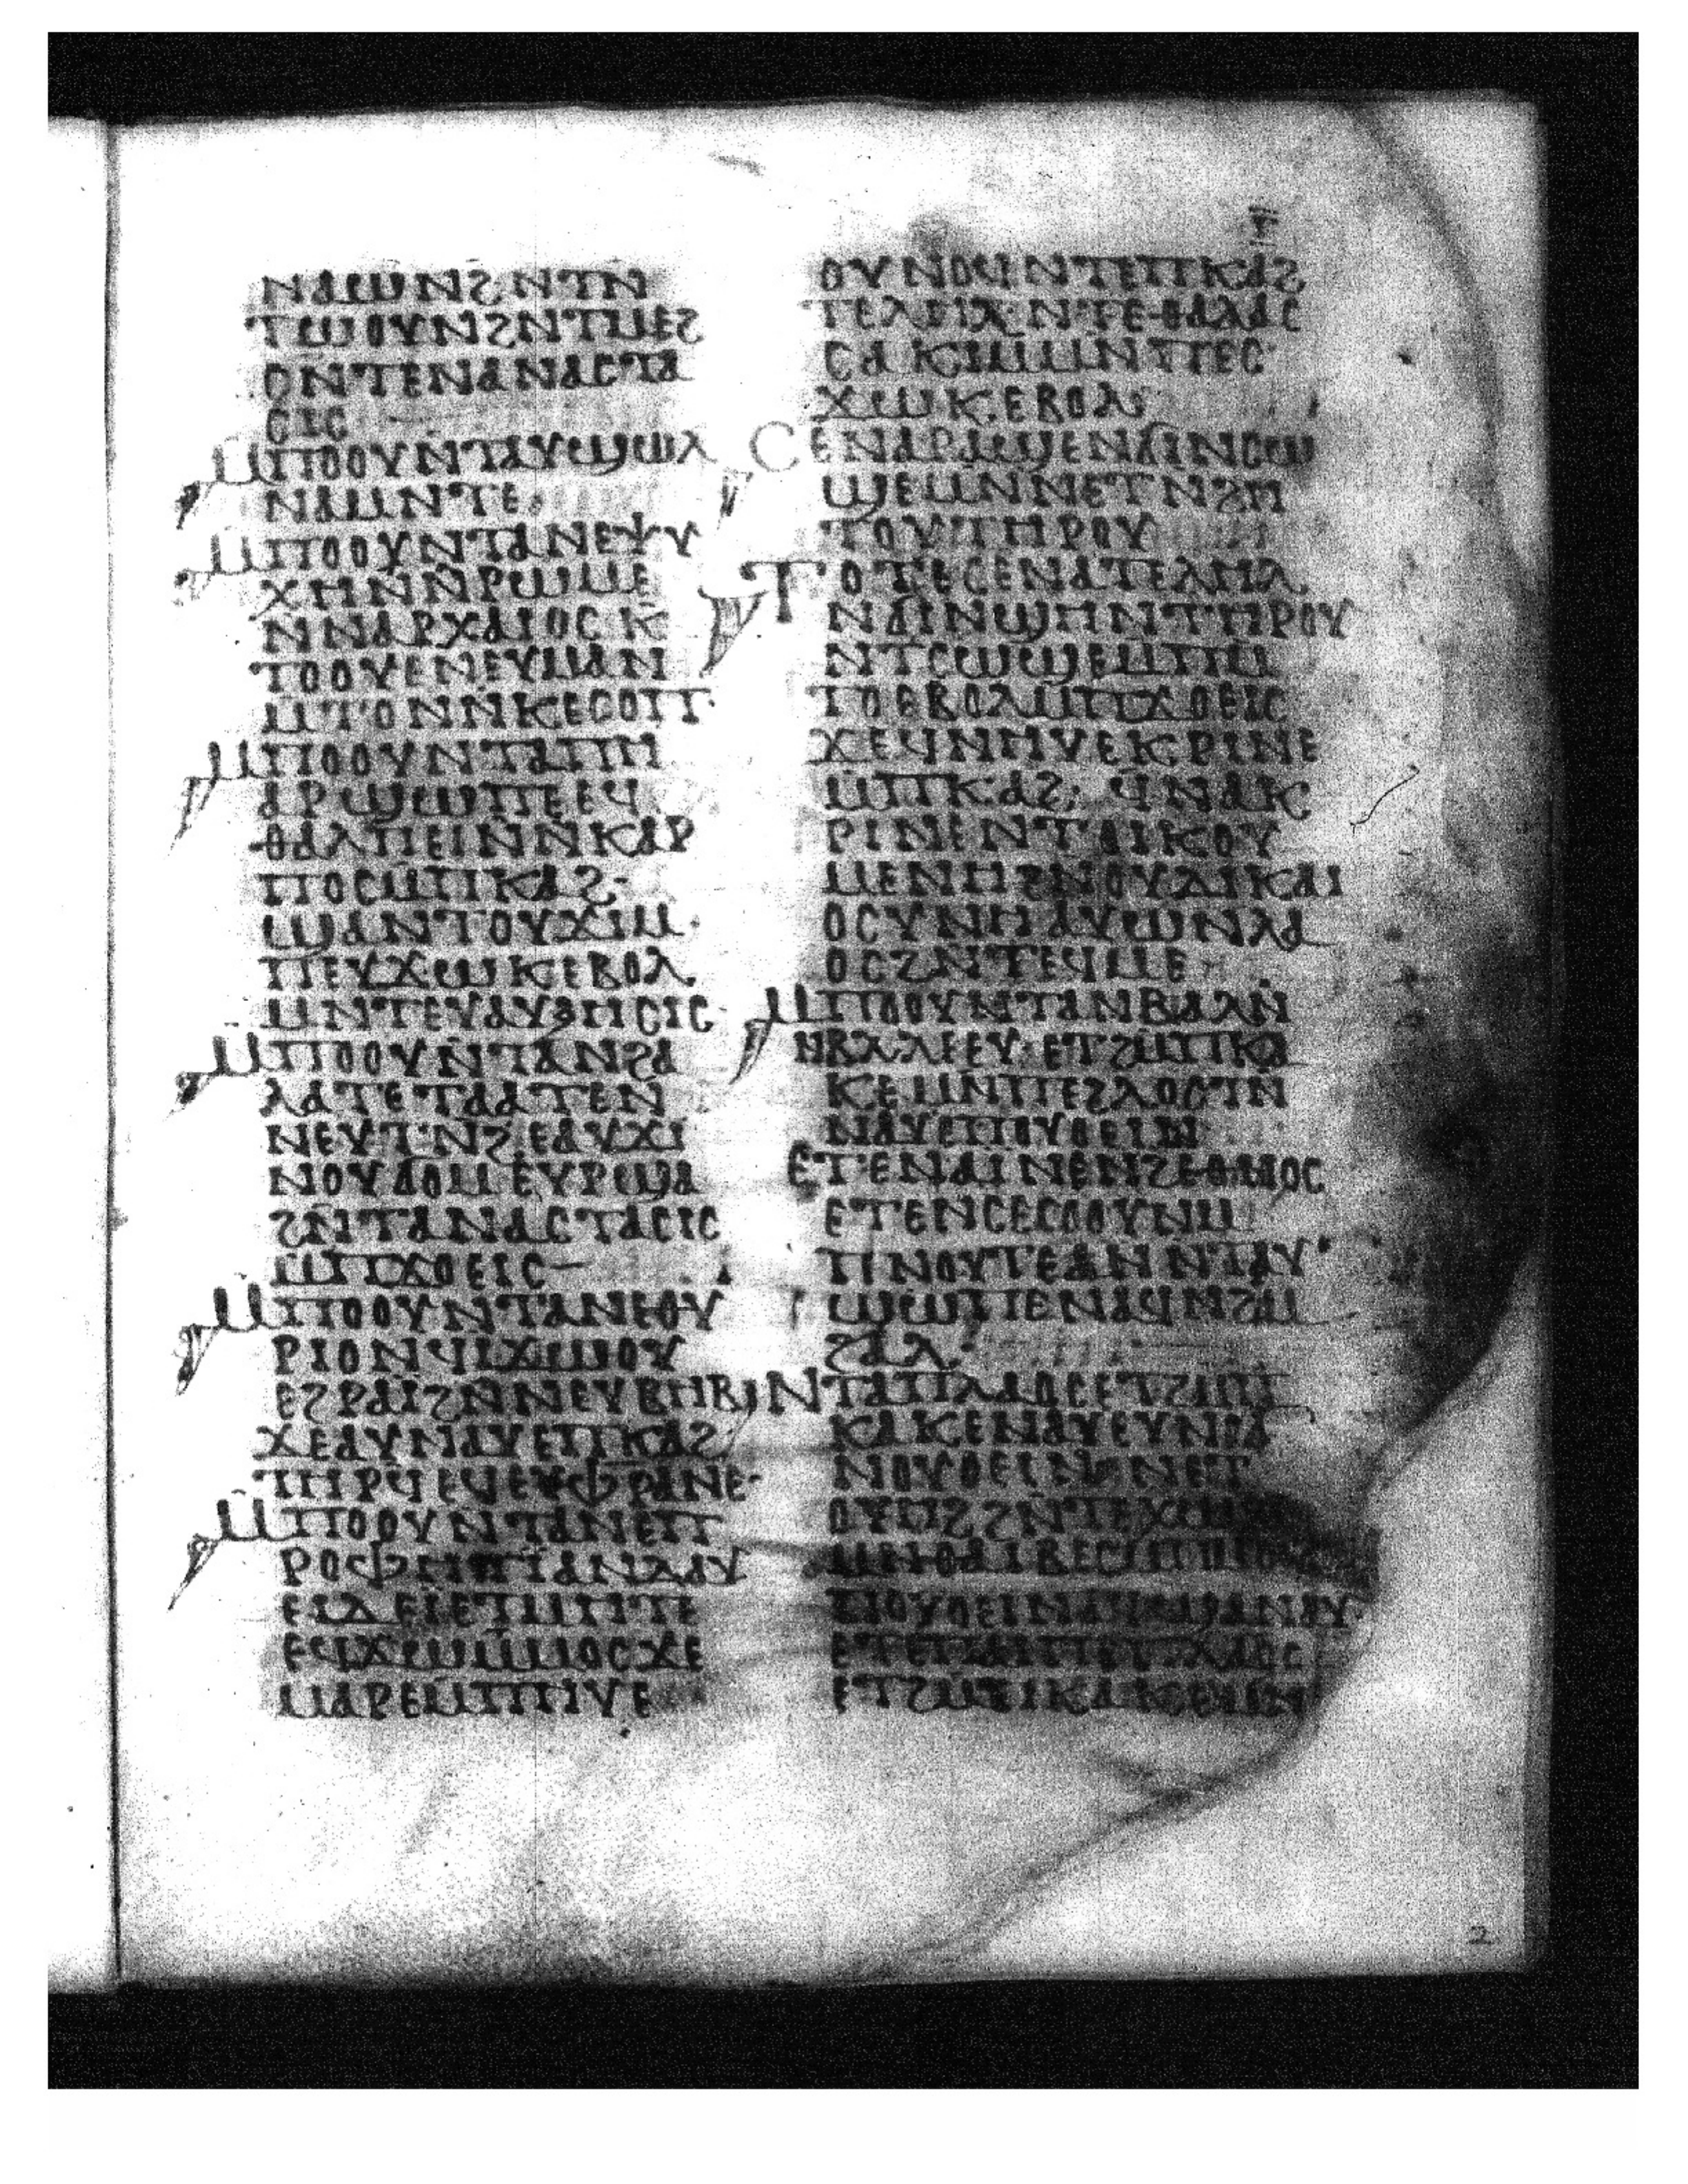 ⲅ
ⲛⲁⲱⲛϩⲛⲧⲛ
ⲧⲱⲟⲩⲛϩⲛⲧⲙⲉϩ
ⲥⲛⲧⲉⲛⲁⲛⲁⲥⲧⲁ
ⲥⲓⲥ
ⲙⲡⲟⲟⲩⲛⲧⲁⲩϣⲱⲗ
ⲛⲁⲙⲛⲧⲉ
ⲙⲡⲟⲟⲩⲛⲧⲁⲛⲉⲯⲩ
ⲭⲏⲛⲛⲣⲱⲙⲉ
ⲛⲛⲁⲣⲭⲁⲓⲟⲥⲕ
ⲧⲟⲟⲩⲉⲛⲉⲩⲙⲁⲛ
ⲙⲧⲟⲛⲛⲕⲉⲥⲟⲡ
ⲙⲡⲟⲟⲩⲛⲧⲁⲡⲏ
ⲁⲣϣⲱⲡⲉⲉϥ
ⲑⲁⲗⲡⲉⲓⲛⲛⲕⲁⲣ
ⲡⲟⲥⲙⲡⲕⲁϩ
ϣⲁⲛⲧⲟⲩϫⲓⲙ
ⲡⲉⲩϫⲱⲕⲉⲃⲟⲗ
ⲙⲛⲧⲉⲩⲁⲩⲝⲏⲥⲓⲥ
ⲙⲡⲟⲟⲩⲛⲧⲁⲛϩⲁ
ⲗⲁⲧⲉⲧⲁⲁⲧⲉⲛ
ⲛⲉⲩⲧⲛϩⲉⲁⲩϫⲓ
ⲛⲟⲩϭⲟⲙⲉⲩⲣϣⲁ
ϩⲛⲧⲁⲛⲁⲥⲧⲁⲥⲓⲥ
ⲙⲡϫⲟⲉⲓⲥ
ⲙⲡⲟⲟⲩⲛⲧⲁⲛⲉⲑⲩ
ⲣⲓⲟⲛϥⲓϫⲱⲟⲩ
ⲉϩⲣⲁⲓϩⲛⲛⲉⲩⲃⲏⲃ
ϫⲉⲁⲩⲛⲁⲩⲉⲡⲕⲁϩ
ⲧⲏⲣϥⲉϥⲉⲩⲫⲣⲁⲛⲉ
ⲙⲡⲟⲟⲩⲛⲧⲁⲛⲉⲡ
ⲣⲟⲫⲏⲧⲓⲁⲛⲇⲁⲩ
ⲉⲓⲇⲉⲓⲉⲧⲙⲡⲧⲉ
ⲉϥϫⲱⲙⲙⲟⲥϫⲉ
ⲙⲁⲣⲉⲙⲡⲏⲩⲉ
ⲟⲩⲛⲟϥⲛⲧⲉⲡⲕⲁϩ
ⲧⲉⲗⲏⲗⲛⲧⲉⲑⲁⲗⲁⲥ
ⲥⲁⲕⲓⲙⲙⲛⲡⲉⲥ
ϫⲱⲕⲉⲃⲟⲗ
ⲥⲉⲛⲁⲣⲁϣⲉⲛϭⲓⲛⲥⲱ
ϣⲉⲙⲛⲛⲉⲧⲛϩⲏ
ⲧⲟⲩⲧⲏⲣⲟⲩ
ⲧⲟⲧⲉⲥⲉⲛⲁⲧⲉⲗⲏⲗ
ⲛϭⲓⲛϣⲏⲛⲧⲏⲣⲟⲩ
ⲛⲧⲥⲱϣⲉⲙⲡⲙ
ⲧⲟⲉⲃⲟⲗⲙⲡϫⲟⲉⲓⲥ
ϫⲉϥⲛⲏⲩⲉⲕⲣⲓⲛⲉ
ⲙⲡⲕⲁϩ ϥⲛⲁⲕ
ⲣⲓⲛⲉⲛⲧⲟⲓⲕⲟⲩ
ⲙⲉⲛⲏϩⲛⲟⲩⲇⲓⲕⲁⲓ
ⲟⲥⲩⲛⲏⲁⲩⲱⲛⲗⲁ
ⲟⲥϩⲛⲧⲉϥⲙⲉ
ⲙⲡⲟⲟⲩⲛⲧⲁⲛⲃⲁⲗⲛ
ⲛⲃⲗⲗⲉⲉⲩⲉⲧϩⲙⲡⲕⲁ
ⲕⲉⲙⲛⲡⲉϩⲗⲟⲥⲧⲛ
ⲛⲁⲩⲉⲡⲟⲩⲟⲉⲓⲛ
ⲉⲧⲉⲛⲁⲓⲛⲉⲛϩⲉⲑⲛⲟⲥ
ⲉⲧⲉⲛⲥⲉⲥⲟⲟⲩⲛⲙ
ⲡⲛⲟⲩⲧⲉⲁⲛⲛⲧⲁⲩ
ϣⲱⲡⲉⲛⲁϥⲛϩⲙ
ϩⲁⲗ
ⲛⲧⲁⲡⲗⲁⲟⲥⲉⲧϩⲙⲡ
ⲕⲁⲕⲉⲛⲁⲩⲉⲩⲛⲟϭ
ⲛⲟⲩⲟⲉⲓⲛⲛⲉⲧ
ⲟⲩⲏϩϩⲛⲧⲉⲭⲱⲣⲁ
ⲙⲛⲑⲁⲓⲃⲉⲥⲙⲡⲙⲟⲩ